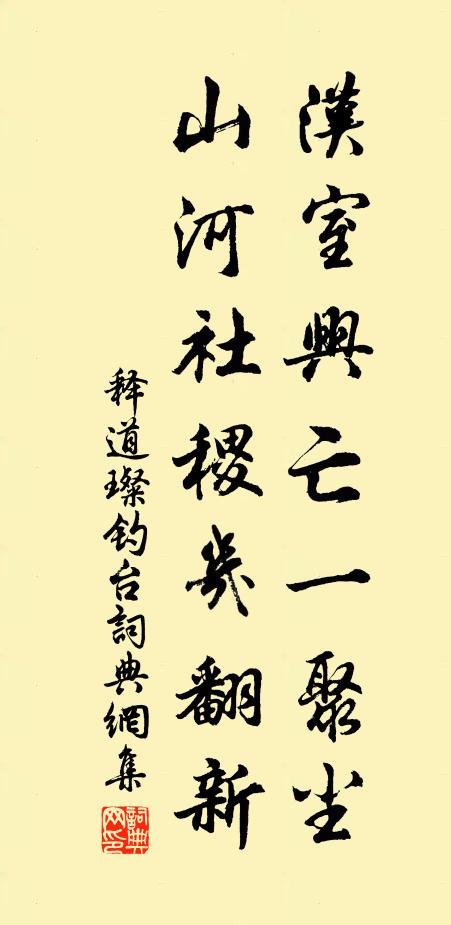 漢室興亡一聚尘
山河社稷幾翻新
释道璨钓台詞典網集
詞典网印